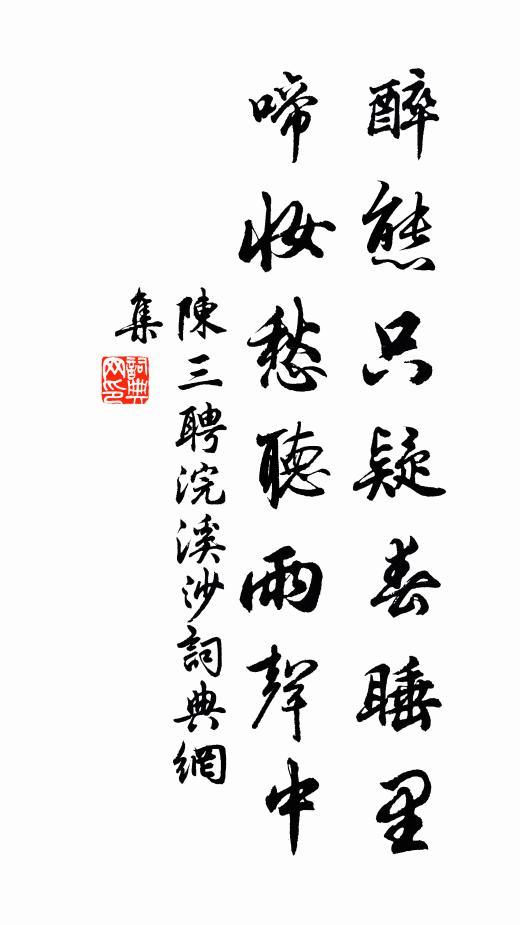 醉態只疑春睡里
啼妝愁聽雨聲中
陳三聘浣溪沙詞典網
集
詞典
网印